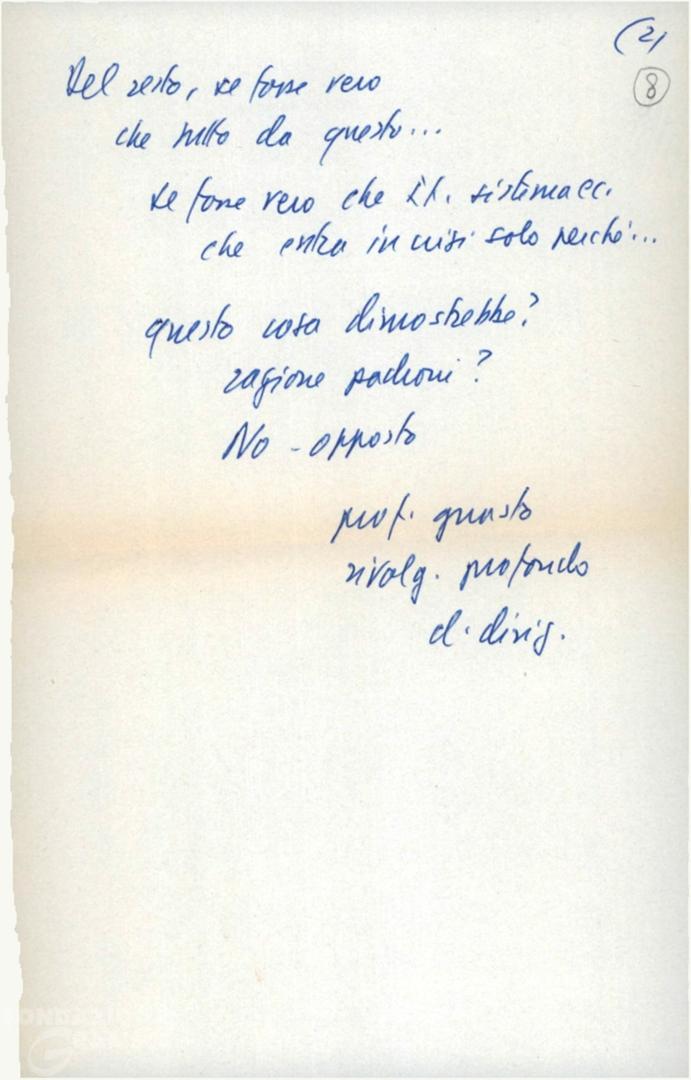 (2)
8
Del resto, se fosse vero
che tutto da questo...
se fosse vero che it. sistema ecc.
che entra in crisi solo perché...
questo cosa dimostrebbe?
ragione padroni?
No - opposto
prof. guasto
rivolg. profondo
d. dirig.